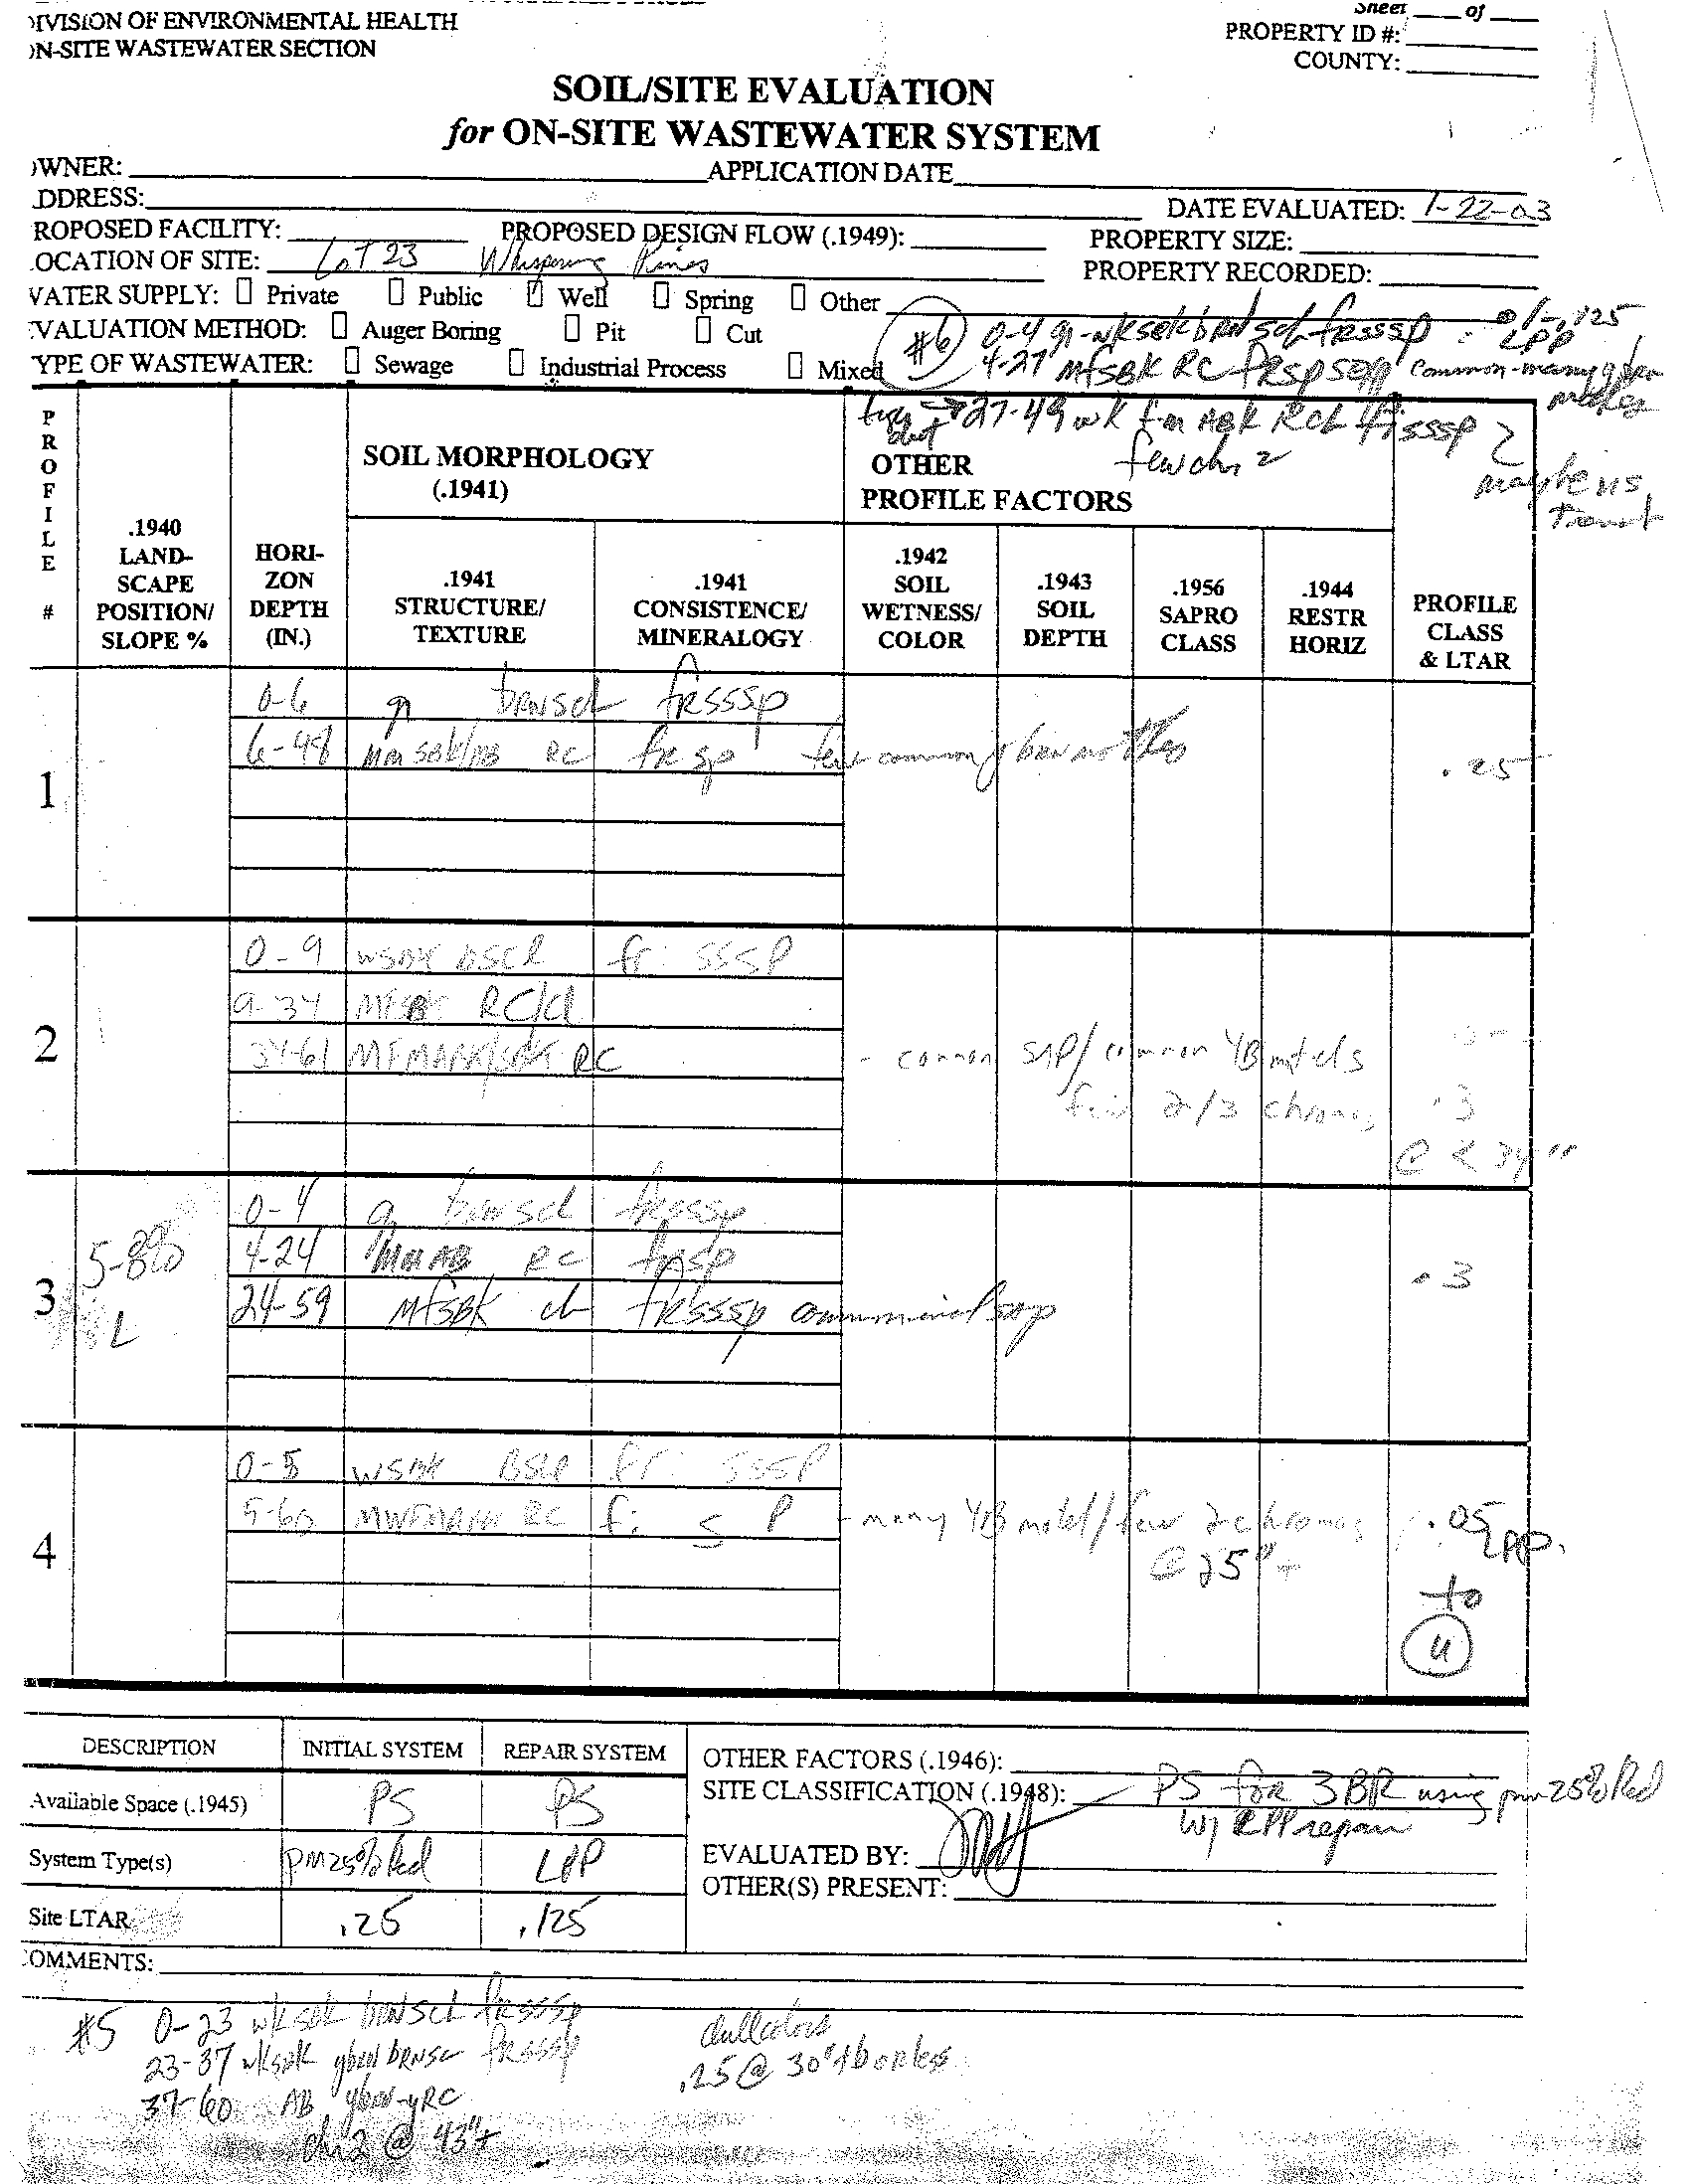 IVISION OF ENVIRONMENTAL HEALTH
N-SITE WASTEWATER SECTION
Sheet ___ of ___
PROPERTY ID #:
COUNTY:
SOIL/SITE EVALUATION
for ON-SITE WASTEWATER SYSTEM
WNER: APPLICATION DATE
DDRESS: DATE EVALUATED: 1-22-03
ROPOSED FACILITY: PROPOSED DESIGN FLOW (.1949): PROPERTY SIZE:
OCATION OF SITE: LOT 23 Whispering Pines PROPERTY RECORDED:
VATER SUPPLY: Private Public Well Spring Other
VALUATION METHOD: Auger Boring Pit Cut
YPE OF WASTEWATER: Sewage Industrial Process Mixed
#6 0-4 gr-wksbk brnscl frsssp .125 LPP
4-27 mfsbk RC frsp common-many
27-49 wk f-m ABK RCL frsssp
few chr 2
PROFILE #
.1940 LAND-SCAPE POSITION/ SLOPE %
HORI-ZON DEPTH (IN.)
SOIL MORPHOLOGY (.1941)
OTHER PROFILE FACTORS
.1941 STRUCTURE/ TEXTURE
.1941 CONSISTENCE/ MINERALOGY
.1942 SOIL WETNESS/ COLOR
.1943 SOIL DEPTH
.1956 SAPRO CLASS
.1944 RESTR HORIZ
PROFILE CLASS & LTAR
1
0-6 gr brnscl frsssp
6-48 RC fr sp few common brn mottles .25
2
0-9 wsbk bscl fr: sssp
9-34 MFSBK RC/cl
34-61 RC - common SAP/common YB mtls
few 2/3 chromas .3
@ < 34"
3
5-8% L
0-4 gr brnscl frsssp
4-24 RC frsp .3
24-59 mfsbk cl frsssp common sap
4
0-5 wsbk BSCl fr: sssp
5-60 RC fi s p - many YB motel/few 2 chromas .05 LPP.
@ 25"+
to
U
DESCRIPTION INITIAL SYSTEM REPAIR SYSTEM
Available Space (.1945) PS PS
System Type(s) PM25%Red LPP
Site LTAR .25 .125
OTHER FACTORS (.1946):
SITE CLASSIFICATION (.1948): PS for 3BR using pm 25% Red
w/ LPP repair
EVALUATED BY:
OTHER(S) PRESENT:
OMMENTS:
#5 0-23 wksbk brnscl frsssp dull colors
23-37 wksbk frsssp .25 @ 30"
37-60 AB ybrn-yRC
chr2 @ 43"+